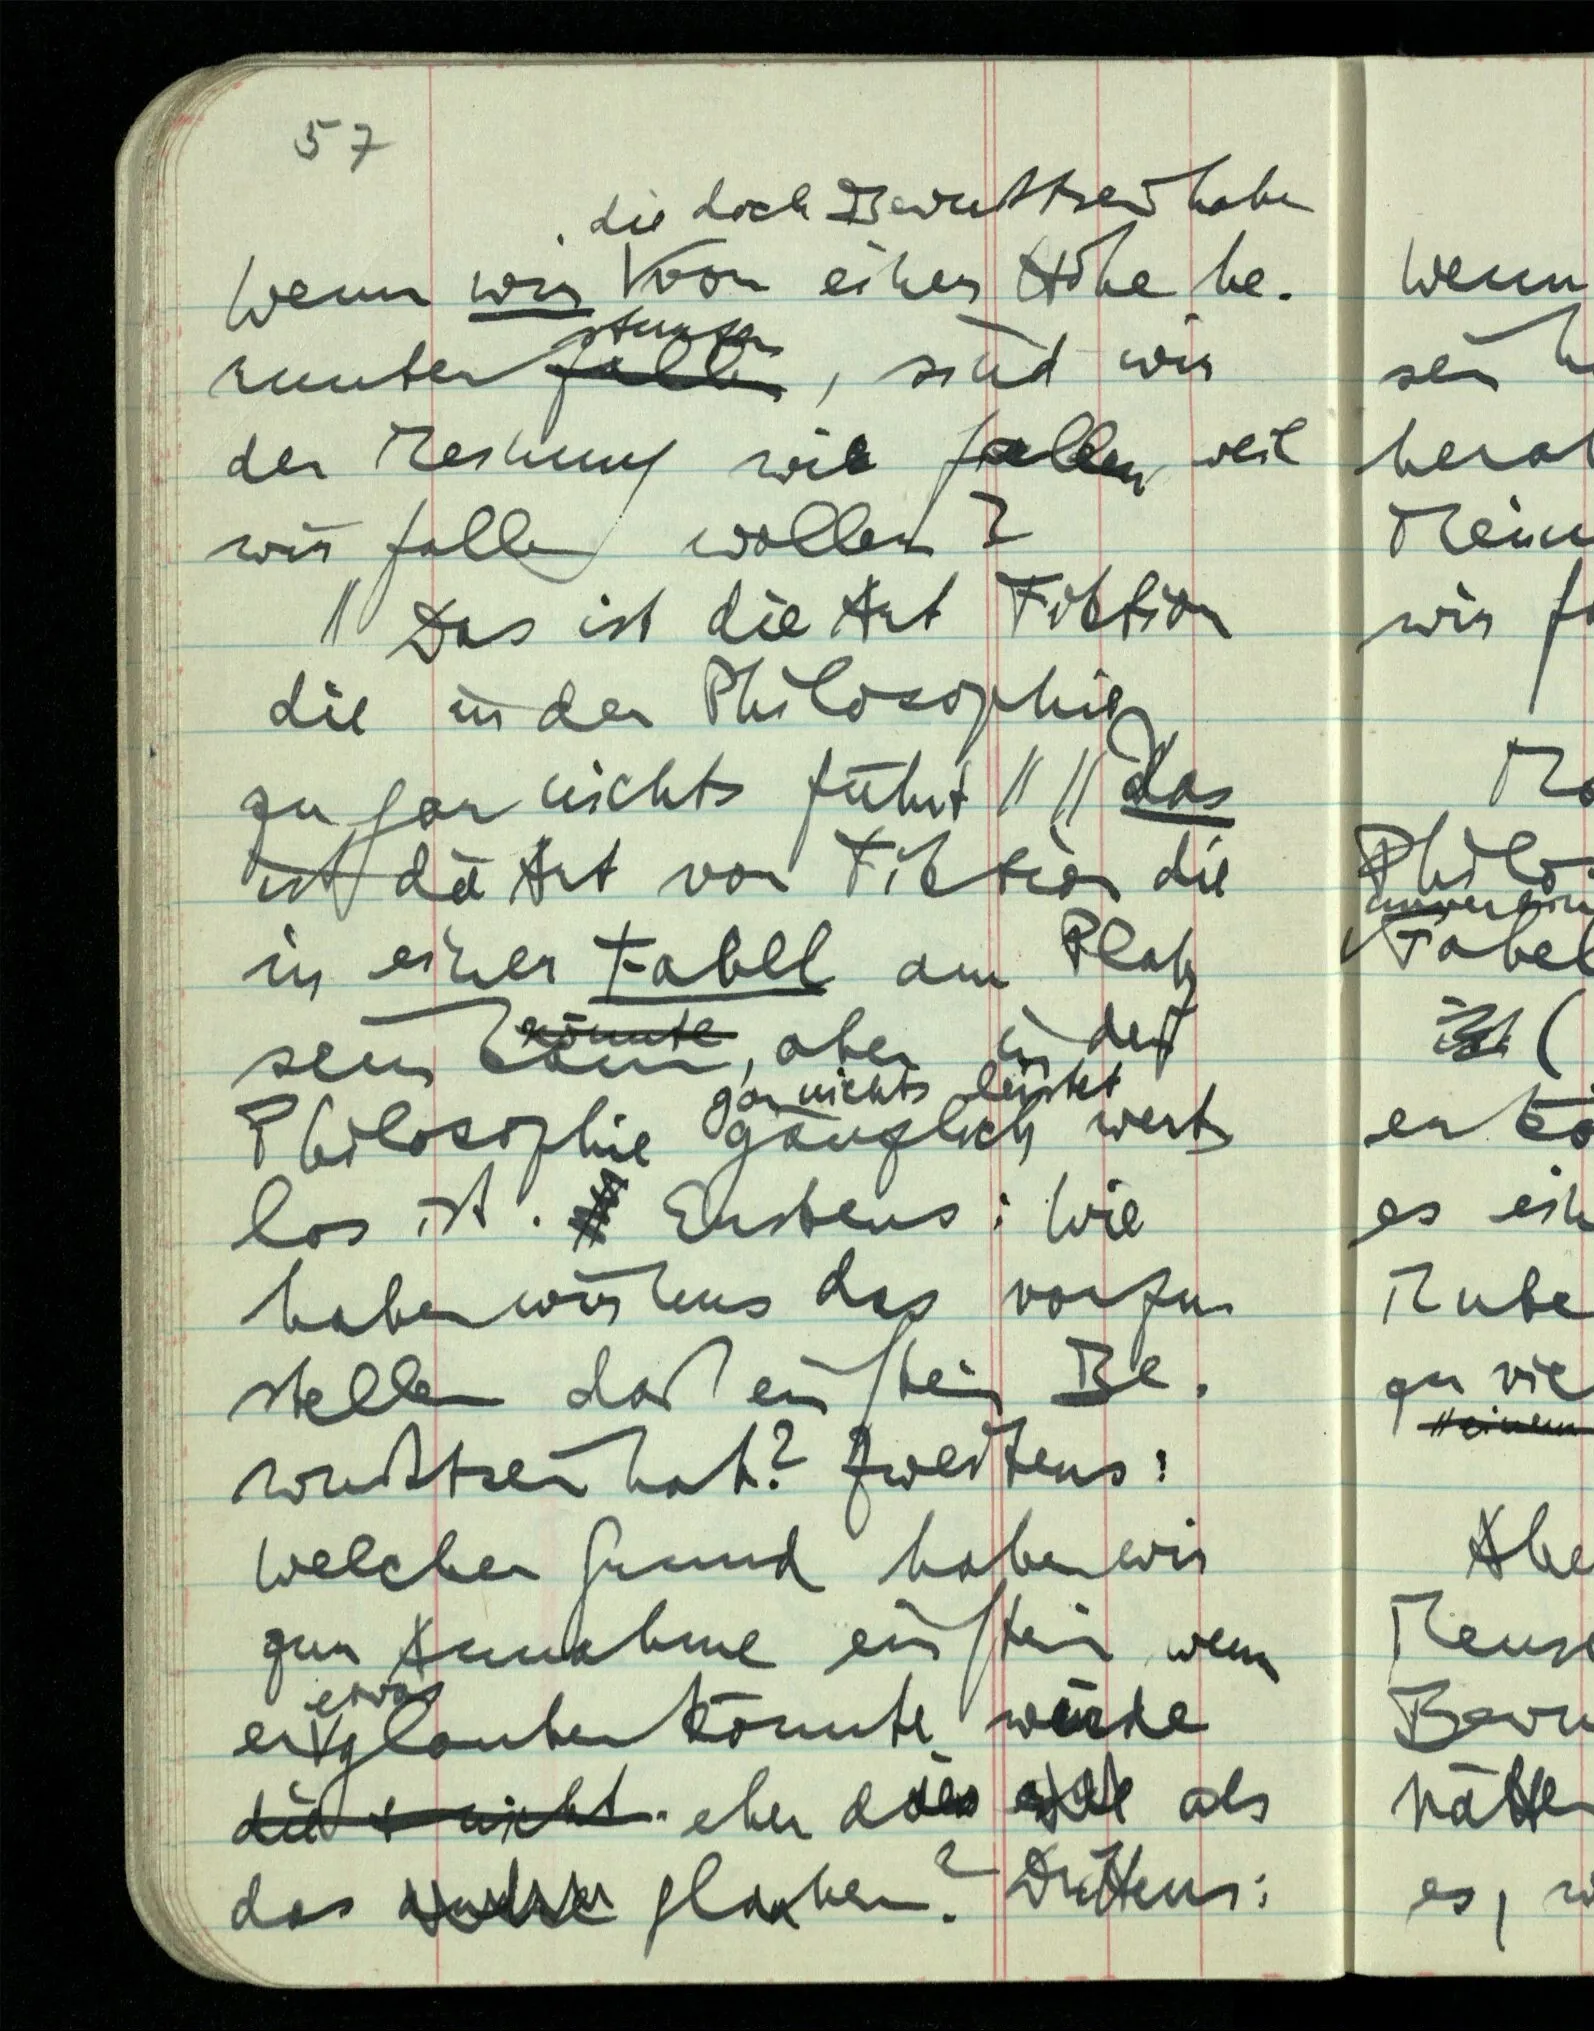 57
die doch Bewußtsein haben
Wenn wir von einer Höhe he-
runter fallen, sind wir
stürzen
der Meinung wir fallen, weil
wir fallen wollen?
// Das ist die Art Fiktion
die in der Philosophie
zu gar nichts führt // // das
ist die Art von Fiktion die
in einer Fabel am Platz
sein kann, aber in der
könnte
gar nichts leistet
Philosophie gänzlich wert
los ist. Erstens: Wie
haben wir uns das vorzu
stellen daß ein Stein Be-
wußtsein hat? Zweitens:
Welchen Grund haben wir
zur Annahme ein Stein, wenn
etwas
er glauben könnte würde
die + nicht eher dies als
das glauben? Drittens:
Wenn
sein
herab
Mein
wir
Philo-
Fabel
ist (
er
es
zu vie
// einem
Abe
Mens
Bewu
hätte
es,